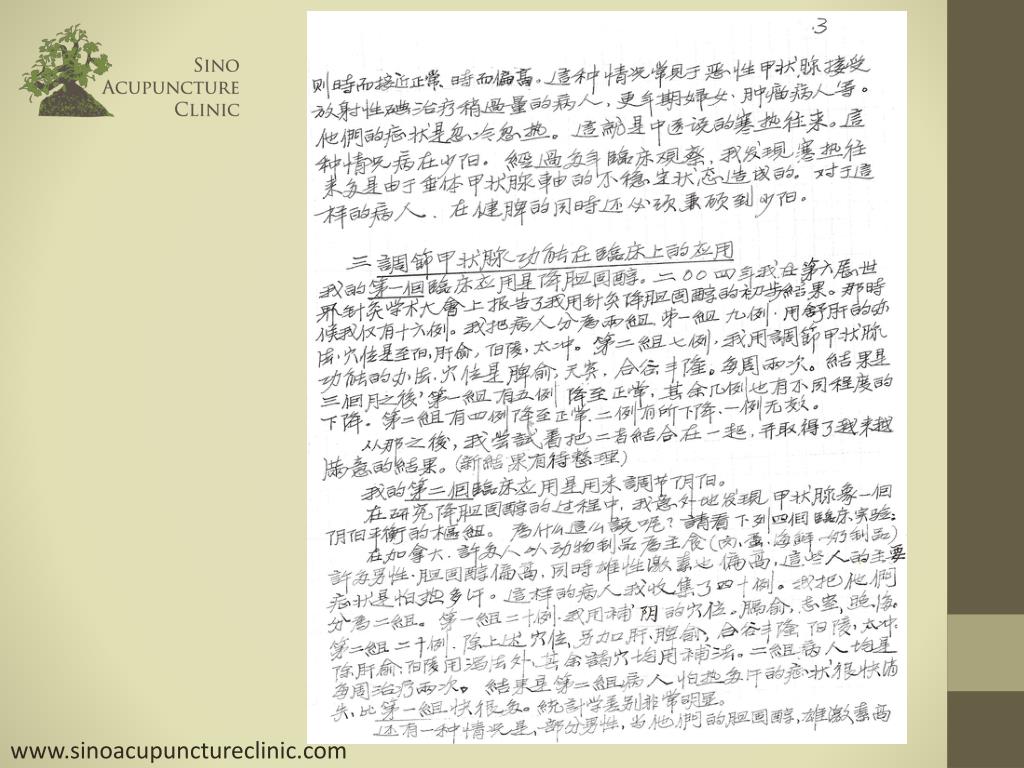 SINO
ACUPUNCTURE
CLINIC
3
则時而接近正常、時而偏高。這种情况常見于恶性甲状腺接受
放射性碘治疗稍過量的病人，更年期婦女，肿瘤病人等。
他們的症状是忽冷忽热。這就是中医说的寒热往来。這
种情况病在少阳。經過多年臨床观察，我发現寒热往
来多是由于垂体甲状腺軸的不稳定状态造成的。对于這
样的病人、在健脾的同時还必须兼顾到少阳。
三 調節甲状腺功能在臨床上的应用
我的第一個臨床应用是降胆固醇。二00四年我在第六届世
界針灸学术大會上报告了我用針灸降胆固醇的初步結果。那時
候我仅有十六例。我把病人分為两組，第一組九例，用舒肝的办
法，穴位是至阳，肝俞，阳陵，太冲。第二組七例，我用調節甲状腺
功能的办法，穴位是脾俞，天突，合谷丰隆。每周两次。結果是
三個月之後，第一組有五例降至正常，其余几例也有不同程度的
下降。第二組有四例降至正常，二例有所下降，一例无效。
从那之後，我尝試着把二者結合在一起，并取得了越来越
滿意的結果。(新結果有待整理)
我的第二個臨床应用是用来調节阴阳。
在研究降胆固醇的过程中，我意外地发現甲状腺象一個
阴阳平衡的樞紐。為什么這么說呢？請看下列四個臨床实验：
在加拿大，許多人以动物制品為主食(肉、蛋、海鲜、奶制品)
許多男性，胆固醇偏高，同時雄性激素也偏高，這些人的主要
症状是怕热多汗。這样的病人我收集了四十例。我把他們
分為二組。第一組二十例，我用補阴的穴位。膈俞，志室，照海。
第二組二十例，除上述穴位，另加肝、脾俞，合谷丰隆 阳陵，太冲。
除肝俞，阳陵用泻法外，其余諸穴均用補法。二組病人均是
每周治疗两次。結果是第二組病人怕热多汗的症状很快消
失，比第一組快很多。統計学差别非常明显。
还有一种情况是，一部分男性，当他們的胆固醇，雄激素高
www.sinoacupunctureclinic.com